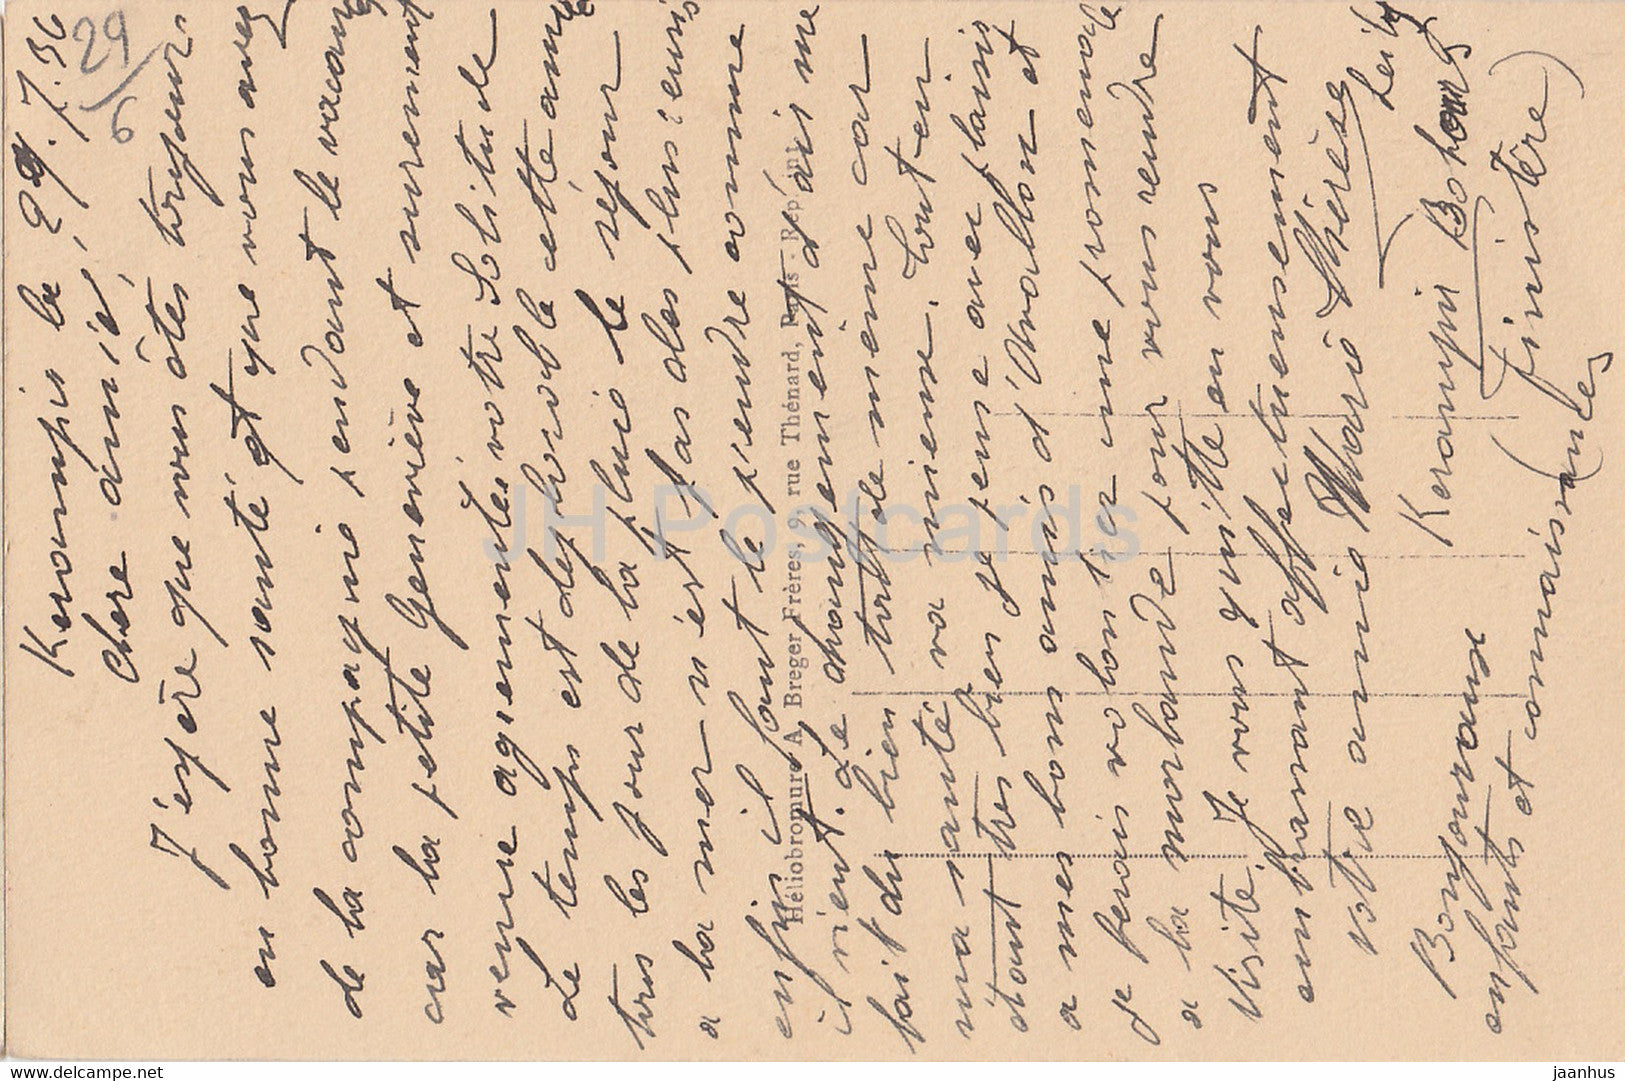 Kerampir le, 29.7.36
29/6
Chere amie,
J'éspère que vous êtes toujours
en bonne santé et que vous avez
de la compagnie pendant le vacances
car la petite Geneviève et surement
venue agrementés votre Solitude
Le temps est deplorable cette année
tous les jour de la pluie le séjour
a la mer n'est pas des plus
enfin il faut le prendre comme
il vient. Le changement d'air me
fait du bien tout de même car
ma santé va mieux. tout en
étant tres bien je pense avec plaisir
a mes bons amis d'Avallon et
je ferais volontier une promenade
a la pour vous rendre
visite. Je vous quitte en vous
embrassant affectueusement
votre amie Marie Thérèse
Kerampir Bohars
(Finistère)
Bonjour aux
enfants et connaissances
Héliobromure A. Breger Frères, 9, rue Thénard, Paris - Rép.
JH Postcards
www.hippostcard.com
jaanhus